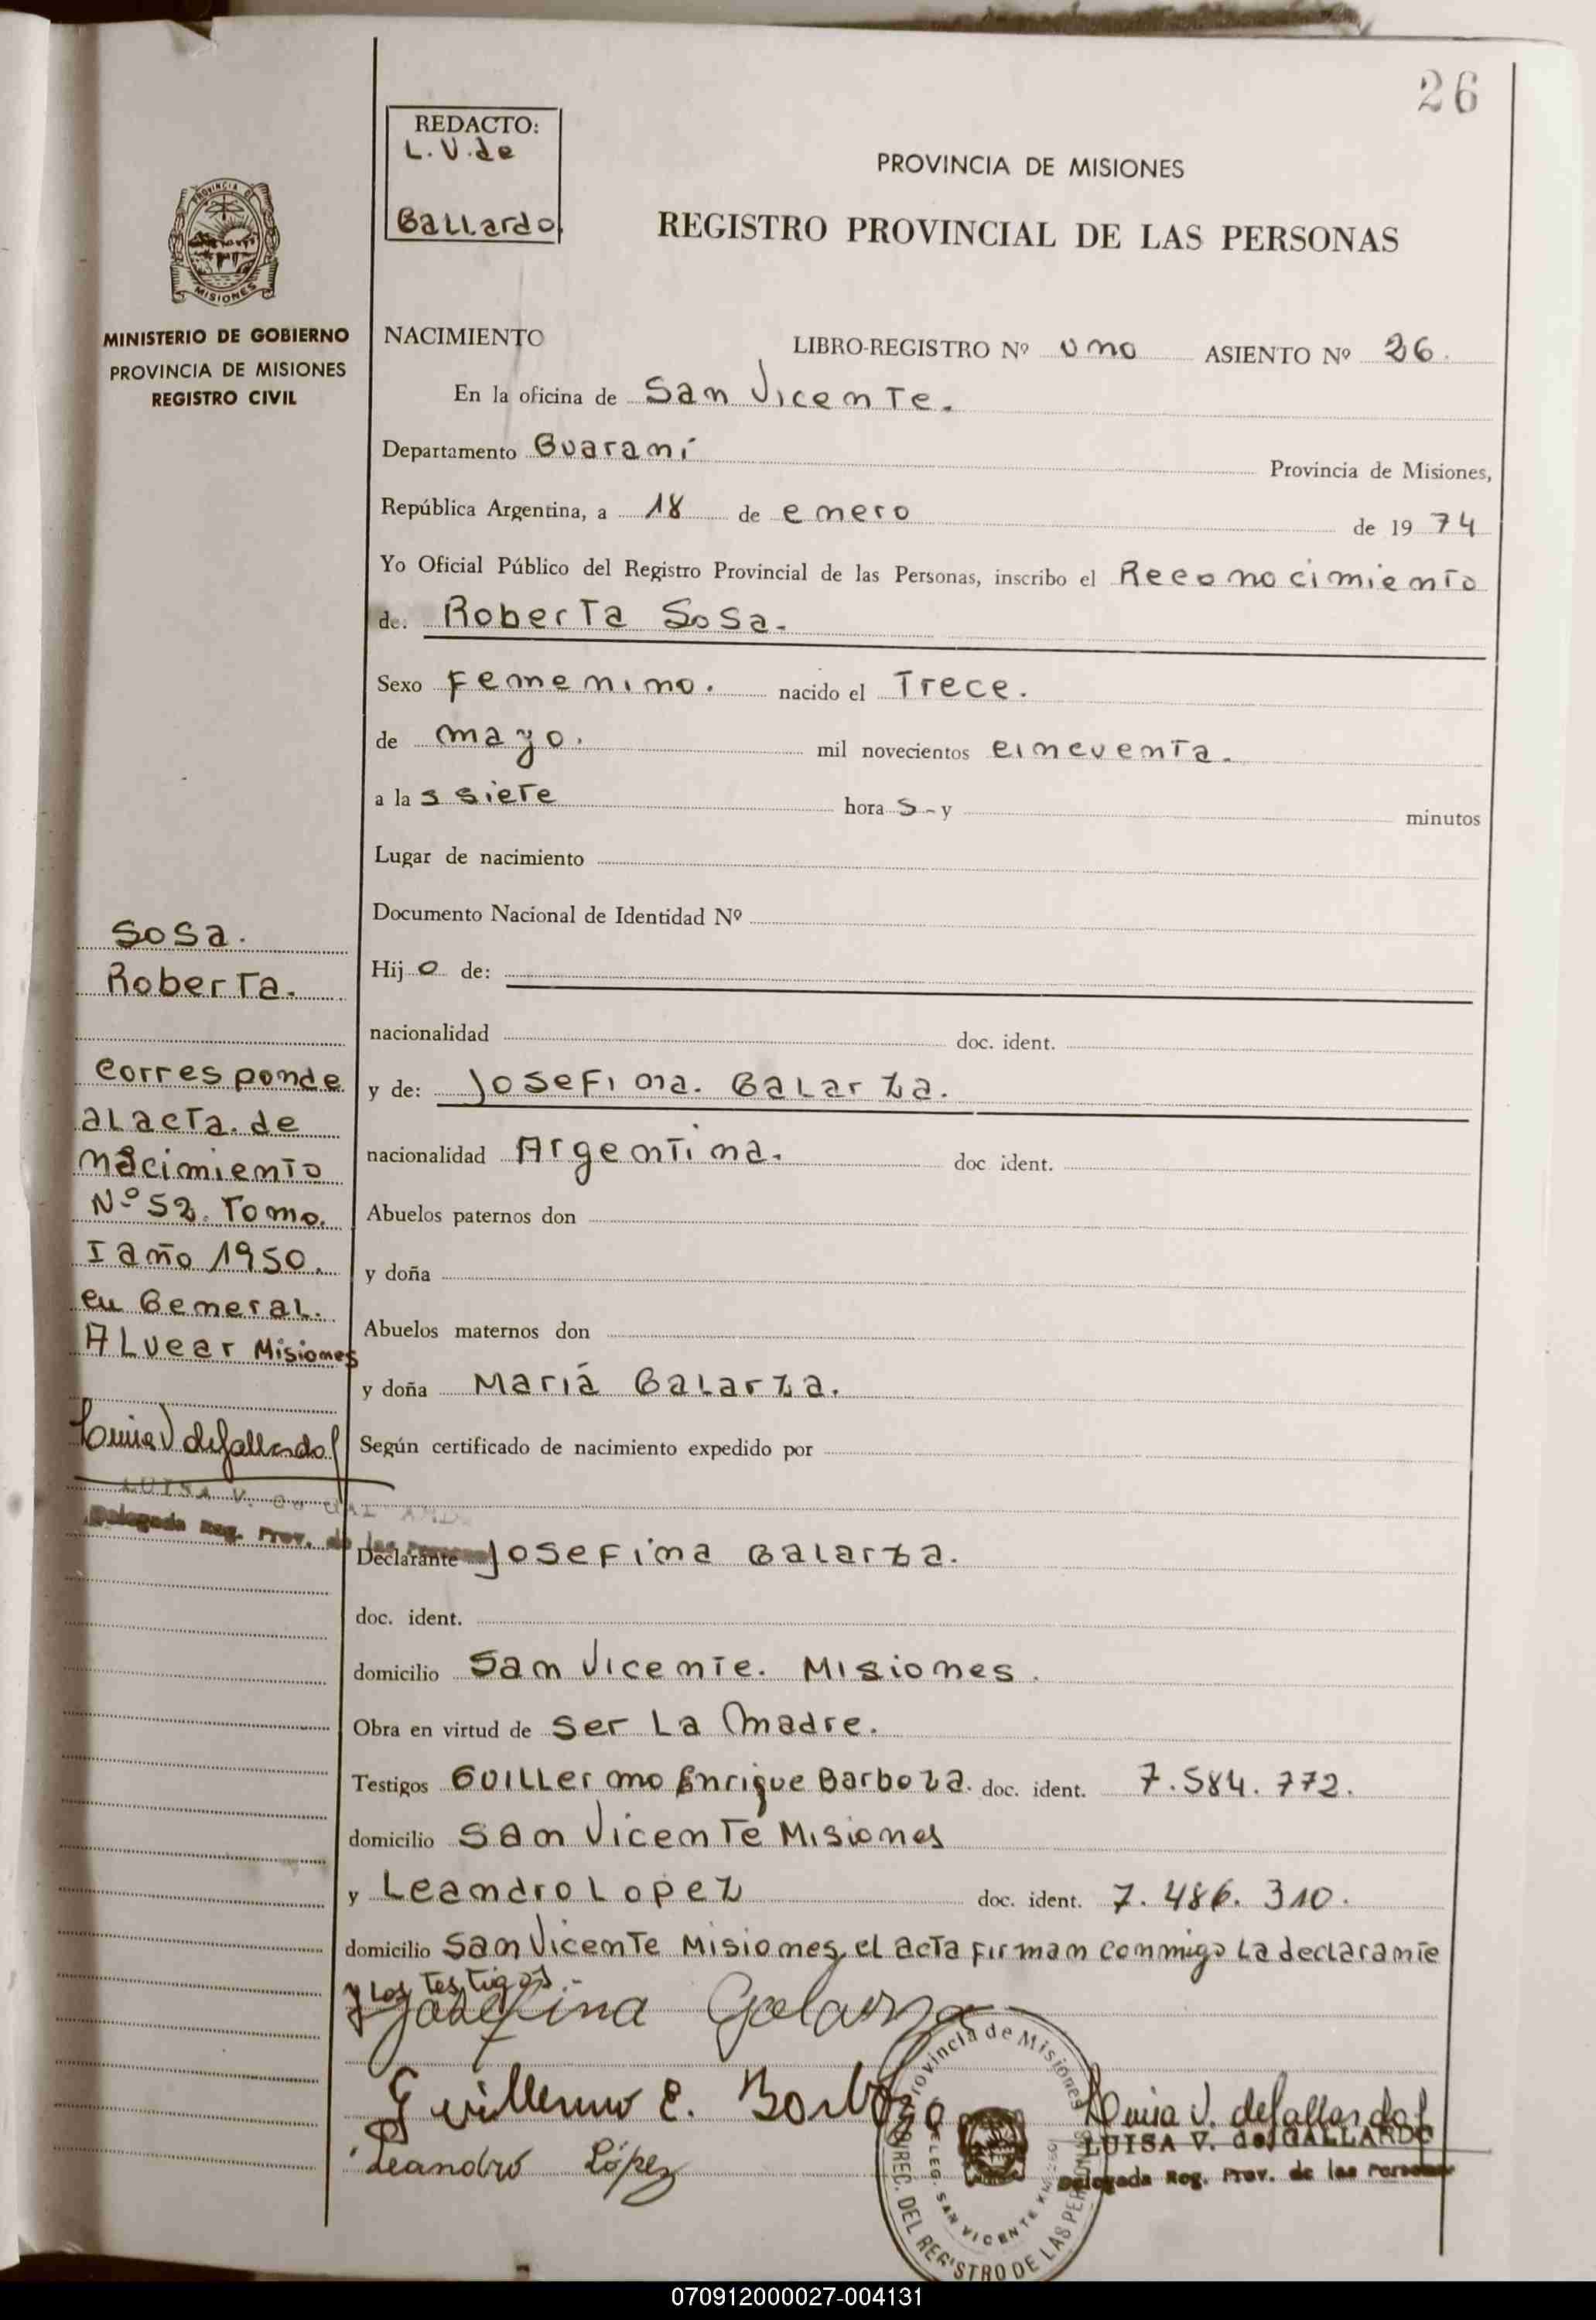 26
REDACTO:
L.V.de
Gallardo
PROVINCIA DE MISIONES
REGISTRO PROVINCIAL DE LAS PERSONAS
PROVINCIA DE
MISIONES
MINISTERIO DE GOBIERNO
PROVINCIA DE MISIONES
REGISTRO CIVIL
NACIMIENTO
LIBRO-REGISTRO Nº uno ASIENTO Nº 26.
En la oficina de San Vicente.
Departamento Guaraní Provincia de Misiones,
República Argentina, a 18 de enero de 1974
Yo Oficial Público del Registro Provincial de las Personas, inscribo el Reconocimiento
de. Roberta Sosa.
Sexo Femenino. nacido el Trece.
de mayo. mil novecientos cincuenta.
a las siete horas-y minutos
Lugar de nacimiento
Documento Nacional de Identidad Nº
Hijo de:
nacionalidad doc. ident.
y de: Josefina. Galarza.
nacionalidad Argentina. doc ident.
Abuelos paternos don
y doña
Abuelos maternos don
y doña Mariá Galarza.
Según certificado de nacimiento expedido por
Declarante Josefina Galarza.
doc. ident.
domicilio San Vicente. Misiones.
Obra en virtud de ser La madre.
Testigos Guillermo Enrique Barboza. doc. ident. 7.584.772.
domicilio San Vicente Misiones
y Leandro Lopez doc. ident. 7.486.310.
domicilio San Vicente Misiones, el acta firman conmigo La declarante
y Los testigos.-
Josefina Galarza
Guillermo E. Barboza
Leandro López
Luisa V. de Gallardo
LUISA V. de GALLARDO
Delegada Reg. Prov. de las Personas
Provincia de Misiones
DIREC. DEL REGISTRO DE LAS PERSONAS
DELEG. SAN VICENTE
Sosa.
Roberta.
Corresponde
al acta. de
nacimiento
Nº 52. Tomo.
I año 1950.
en General.
Alvear Misiones
Luisa V de Gallardo
LUISA V.
Delegada Reg. Prov. de las Personas
070912000027-004131